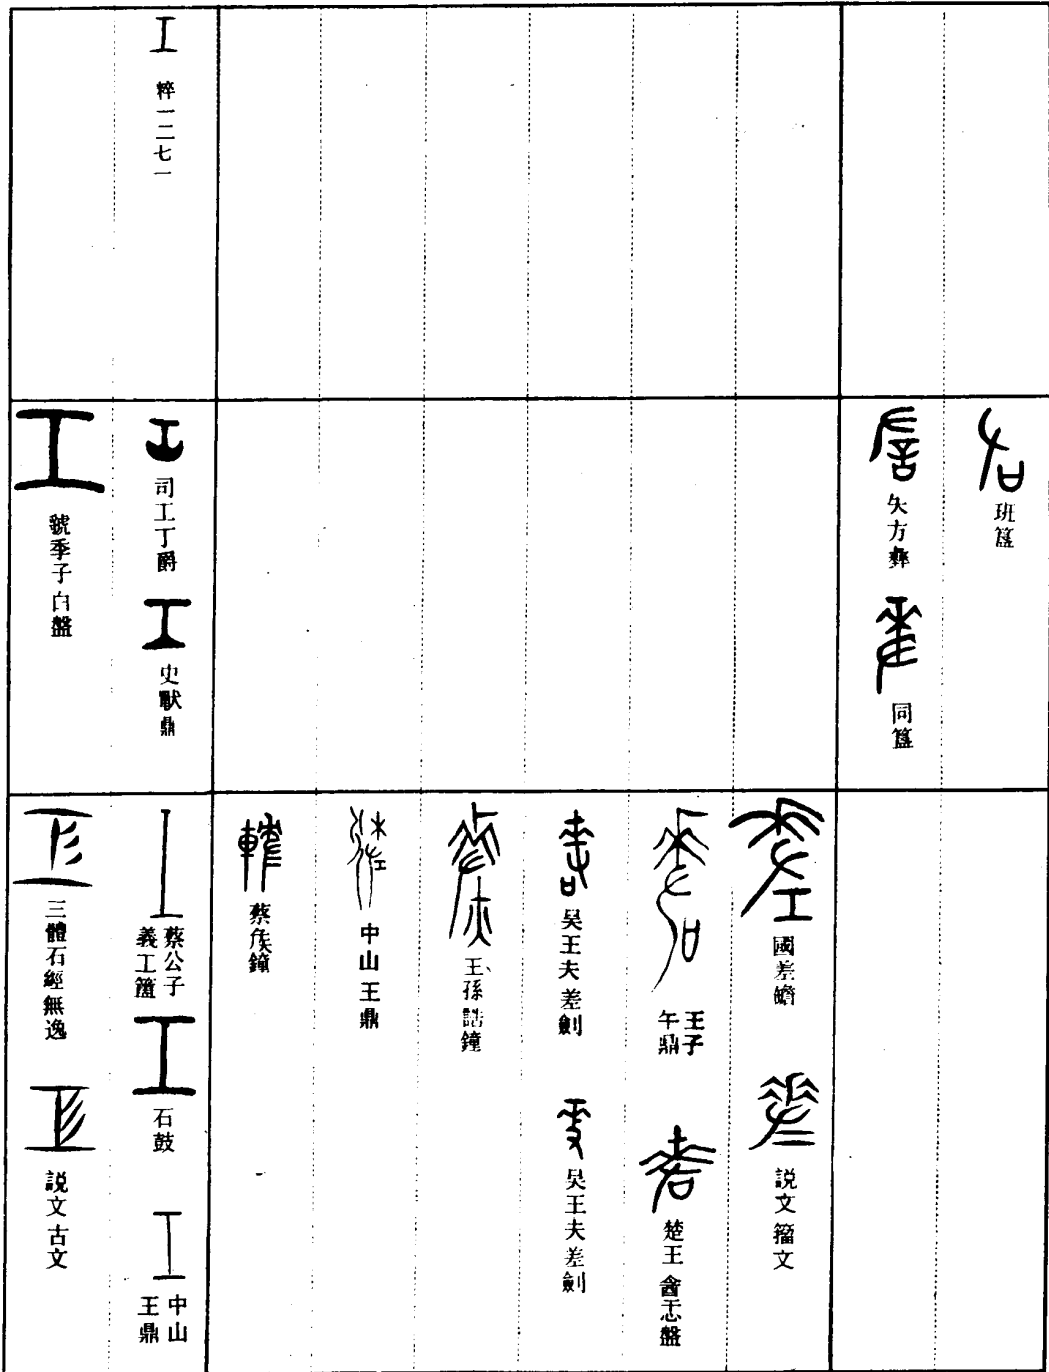 班簋
矢方彝
同簋
國差𦉜
説文籀文
王子
午鼎
楚王酓忎盤
吴王夫差劍
吴王夫差劍
王孫誥鐘
中山王鼎
蔡侯鐘
粹一二七一
司工丁爵
史獸鼎
蔡公子
義工簠
石鼓
中山
王鼎
虢季子白盤
三體石經無逸
説文古文